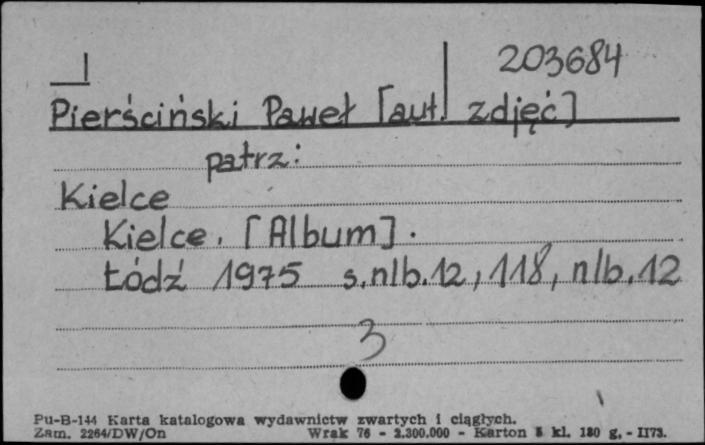 203684
Pierściński Paweł [aut. zdjęć]
patrz:
Kielce
Kielce. [Album].
Łódź 1975 s.nlb.12, 118, nlb.12
3
Pu-B-144 Karta katalogowa wydawnictw zwartych i ciągłych.
Zam. 2264/DW/On Wrak 76 - 2.300.000 - Karton kl. 180 g. - II73.